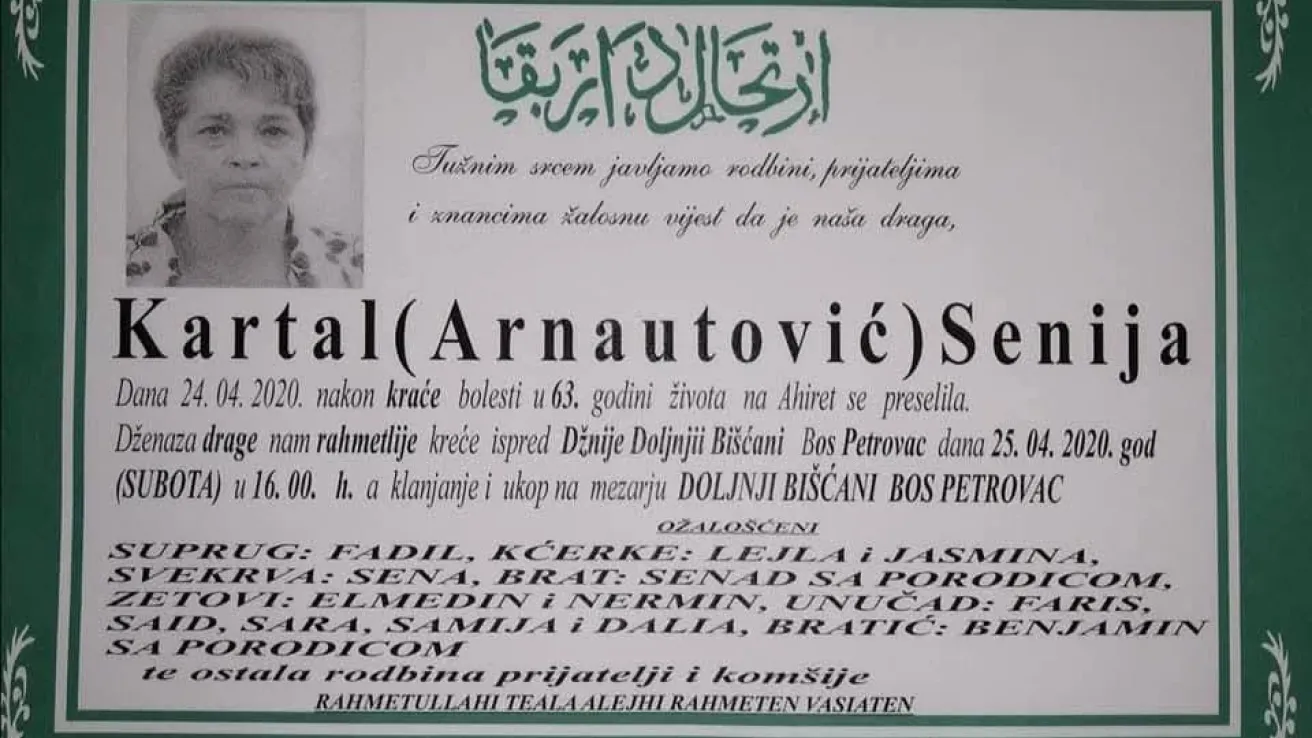 ارتحال دار بقا
Tužnim srcem javljamo rodbini, prijateljima
i znancima žalosnu vijest da je naša draga,
Kartal(Arnautović)Senija
Dana 24. 04. 2020. nakon kraće bolesti u 63. godini života na Ahiret se preselila.
Dženaza drage nam rahmetlije kreće ispred Džnije Doljnjii Bišćani Bos Petrovac dana 25. 04. 2020. god
(SUBOTA) u 16. 00. h. a klanjanje i ukop na mezarju DOLJNJI BIŠĆANI BOS PETROVAC
OŽALOŠĆENI
SUPRUG: FADIL, KĆERKE: LEJLA i JASMINA,
SVEKRVA: SENA, BRAT: SENAD SA PORODICOM,
ZETOVI: ELMEDIN i NERMIN, UNUČAD: FARIS,
SAID, SARA, SAMIJA i DALIA, BRATIĆ: BENJAMIN
SA PORODICOM
te ostala rodbina prijatelji i komšije
RAHMETULLAHI TEALA ALEJHI RAHMETEN VASIATEN